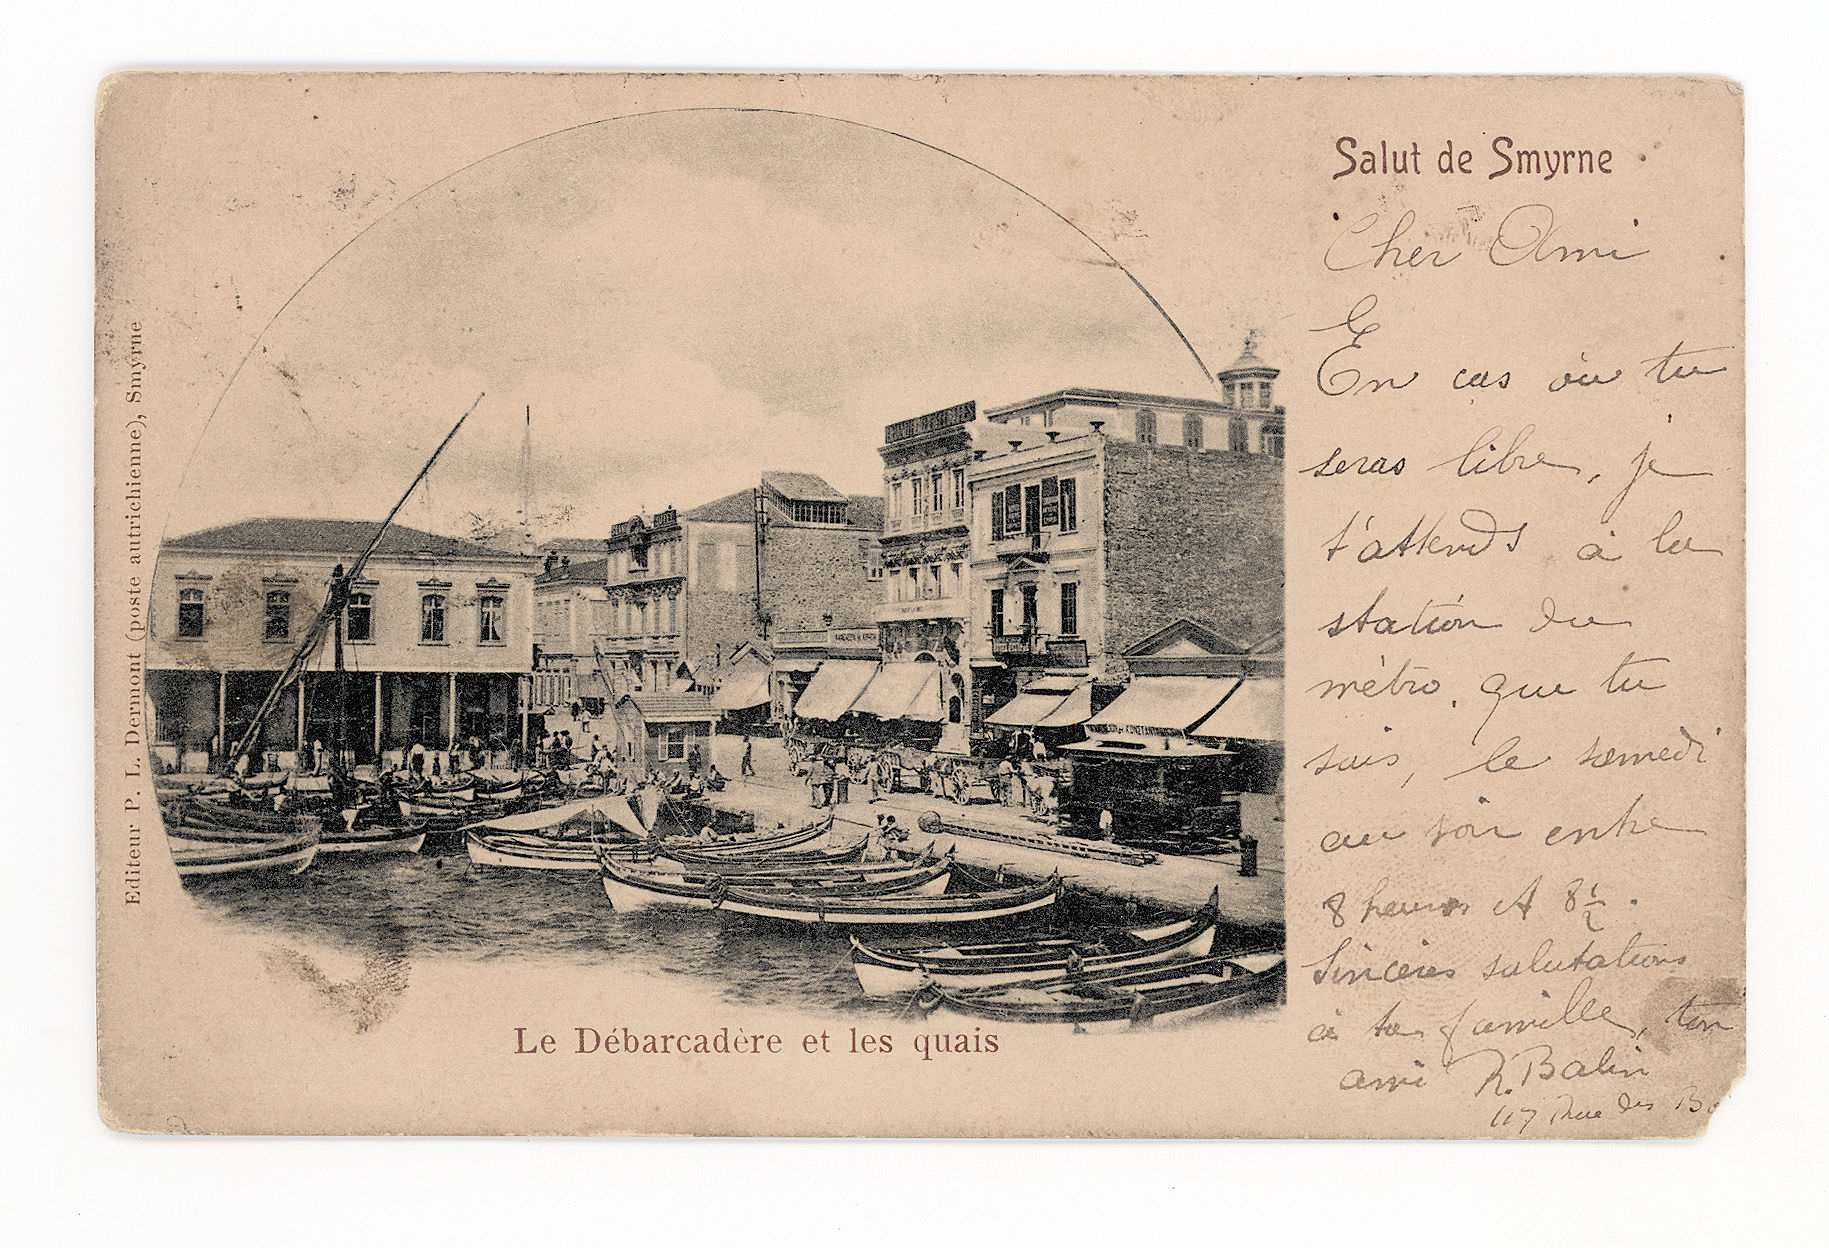 Salut de Smyrne
Cher Ami
En cas où tu
seras libre, je
t'attends à la
station du
métro, que tu
sais, le samedi
au soir entre
8 heures et 8 1/2.
Sincères salutations
à ta famille, ton
ami R. Balin
117 Rue des
Le Débarcadère et les quais
Editeur P. L. Dermont (poste autrichienne), Smyrne